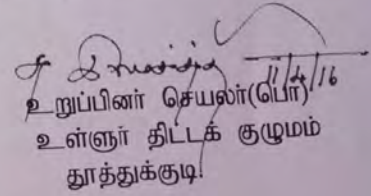 11/4/16
உறுப்பினர் செயலர்(பொ)
உள்ளுர் திட்டக் குழுமம்
தூத்துக்குடி.